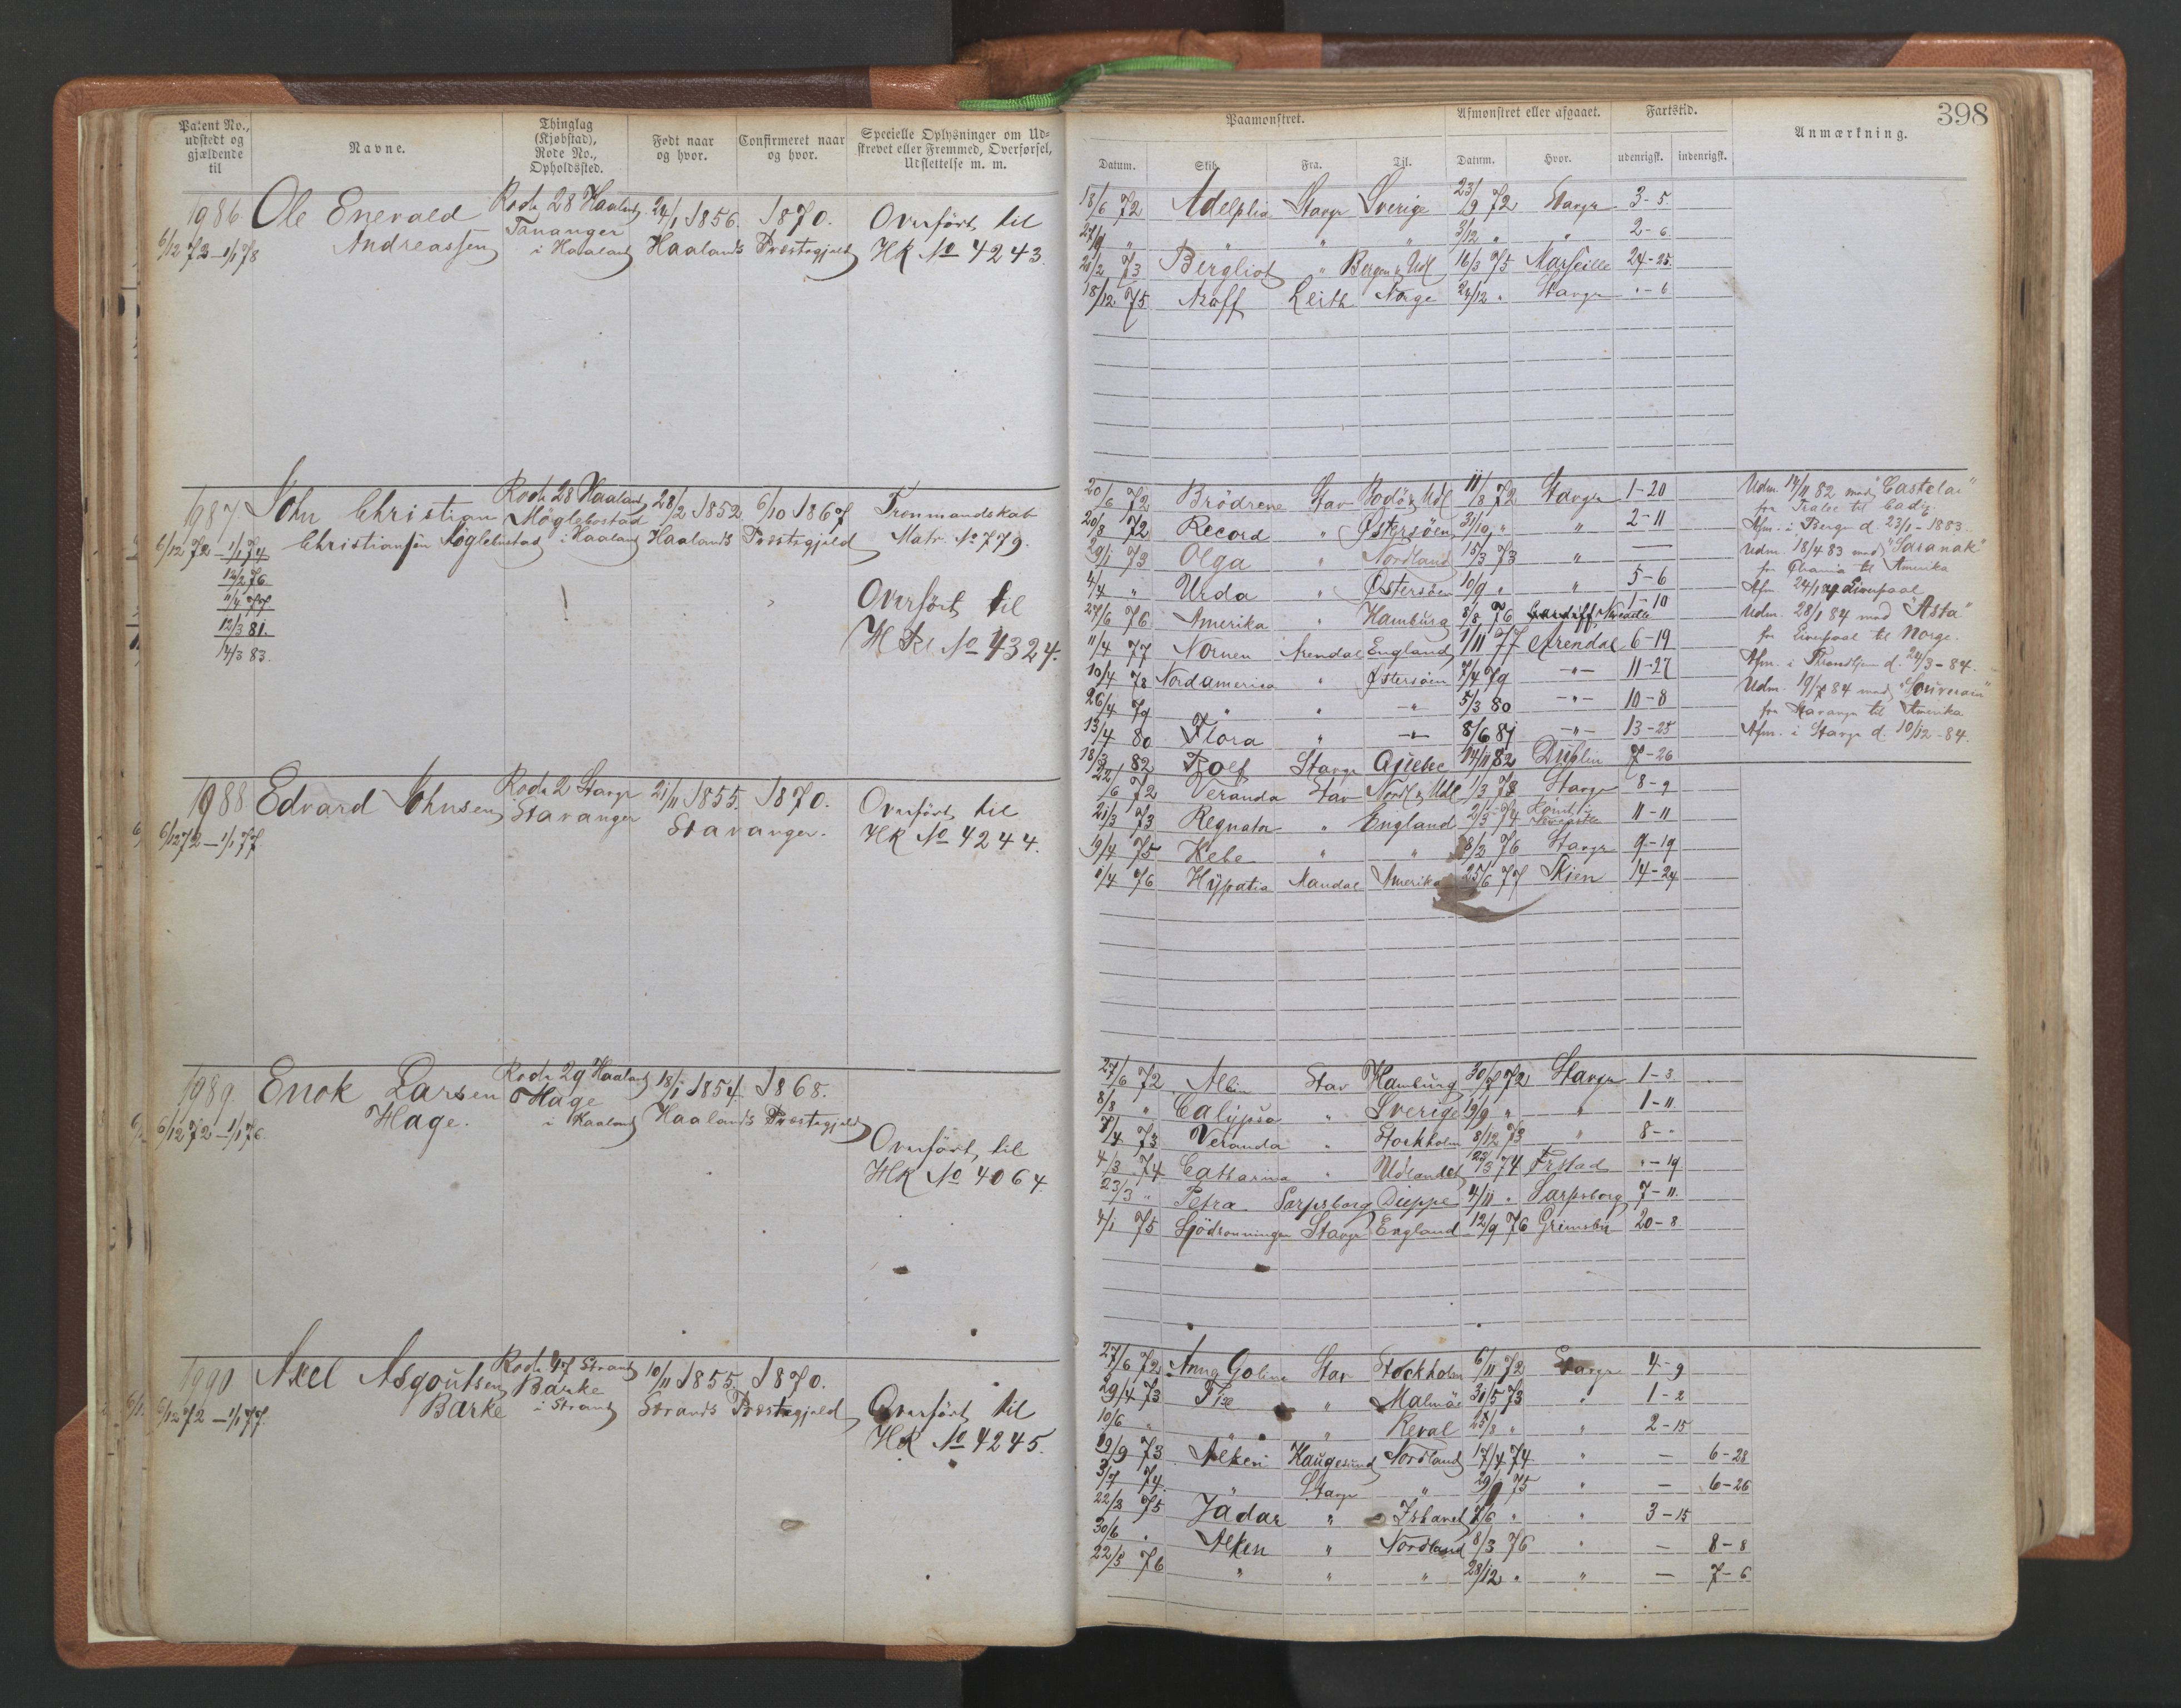 398
Patent No., udstedt og gjældende til | Navne. | Thinglag (Kjøbstad), Rode No., Opholdssted. | Født naar og hvor. | Confirmeret naar og hvor. | Specielle Oplysninger om Udskrevet eller Fremmed, Overførsel, Udslettelse m. m.
Paamønstret. | Afmønstret eller afgaaet. | Fartstid. | Anmærkning.
Datum. | Skib. | Fra. | Til. | Datum. | Hvor. | udenrigsk. | indenrigsk.
1986. Ole Enevald Rode 28 Haaland 24/1 1856. 1870. Overført til
6/12 72 – 1/1 78 Andreassen Tananger i Haaland Haalands Præstegjeld HR No 4243.
18/6 72 Adelphia Stavgr Sverige 23/9 72 Stavgr 3-5.
27/9 " " " " 3/12 " " 2-6.
21/2 73 Bergliot " Bergen & Udl 16/3 75 Marseille 24-25.
18/12 75 Axoff Leith Norge 24/12 " Stavgr "-6
1987 John Christian Rode 28 Haaland 28/2 1852 6/10 1867 Tremandskab
6/12 72 – 1/1 74 Christiansen Møglebostad Møglebostad i Haaland Haalands Præstegjeld Matr. No 779.
12/2 76
11/4 77
12/3 81.
14/3 83.
Overført til
HR No 4324.
20/6 72 Brødrene Stav Bodø & Udl 11/8 72 Stavgr 1-20
20/8 72 Record " Østersøen 31/10 " " 2-11
29/1 73 Olga " Nordland 15/3 73 " —
4/4 " Urda " Østersøen 10/9 " " 5-6
27/6 76 Amerika " Hamburg 8/8 76 Newcastle 1-10
11/4 77 Nornen Arendal England 1/11 77 Arendal 6-19
10/4 78 Nordamerica " Østersøen 7/4 79 -"- 11-27
26/4 79 " " -"- 5/3 80 -"- 10-8
13/4 80 Flora " -"- 8/6 81 -"- 13-25
18/3 82 Rolf Stavgr 14/11 82 Dublin 7-26
Udm. 14/11 82 med "Castelar"
fra Tralee til Cadiz.
Afm. i Bergen d. 23/1-1883.
Udm. 18/4 83 med "Saranak"
fra Chania til Amerika
Afm. 24/1 84 Liverpool
Udm. 28/1 84 med "Asta"
fra Liverpool til Norge.
Afm. i Trondhjem d. 24/3-84.
Udm. 19/7 84 med "Souverain"
fra Stavanger til Amerika
Afm. i Stavgr d. 10/12-84.
1988 Edvard Johnsen Rode 2 Stavgr 21/11 1855. 1870. Overført til
6/12 72 – 1/1 77 Stavanger Stavanger. HR No 4244.
22/6 72 Veranda Stav Nordl & Udl 1/3 73 Stavgr 8-9
21/3 73 Regnator " England 2/3 74 Newcastle 11-11
19/4 75 Hebe " " 8/2 76 Stavgr 9-19
1/4 76 Hypatia Mandal Amerika 25/6 77 Skien 14-24
1989. Enok Larsen Rode 29 Haaland 18/1 1854. 1868.
6/12 72 – 1/1 76. Hage. Hage i Haaland Haalands Præstegjeld
Overført til
HR No 4064
27/6 72 Albin Stav Hamburg 30/7 72 Stavgr 1-3.
8/8 " Calypso " Sverige 19/9 " " 1-11.
7/4 73 Veranda " Stockholm 8/12 73 " 8-"
4/3 74 Catharina " Udlandet 22/3 74 Frstad "-19
23/3 " Petra Sarpsborg Dieppe 4/11 " Sarpsborg 7-11.
4/1 75 Sjødronningen Stavgr England 12/9 76 Grimsby 20-8
1990 Axel Asgoutsen Rode 47 Strand 10/11 1855 1870.
6/12 72 – 1/1 77. Barke Barke i Strand Strands Præstegjeld Overført til
HR No 4245.
27/6 72 Anna Goline Stav Stockholm 6/11 72 Stavgr 4-9
29/4 73 Fix " Malmø 31/5 73 " 1-2
10/6 " " " Reval 25/8 " " 2-15
19/9 73 Alken Haugesund Nordland 17/4 74 " — 6-28
3/7 74. " Stavgr " 29/1 75 " — 6-26
22/3 75 Jadar " Island 7/6 " " 3-15
30/6 " Alken " Nordland 8/3 76 " — 8-8
22/5 76 " " " 28/12 " " — 7-6